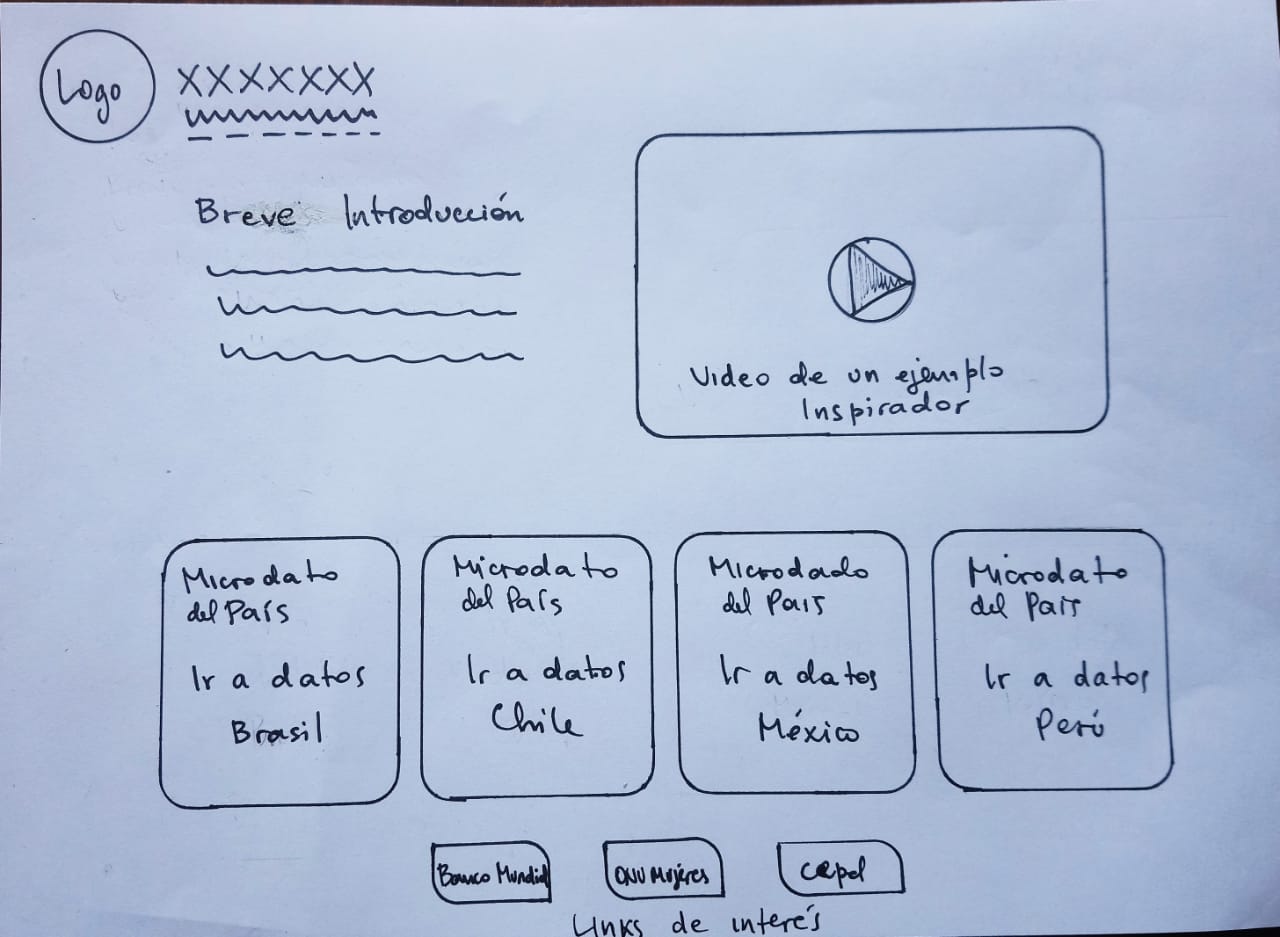 Logo
XXXXXXX
Breve Introducción
Video de un ejemplo
Inspirador
Microdato
del País
Ir a datos
Brasil
Microdato
del País
Ir a datos
Chile
Microdado
del País
Ir a datos
México
Microdato
del País
Ir a datos
Perú
Banco Mundial
ONU Mujeres
Cepal
Links de interés